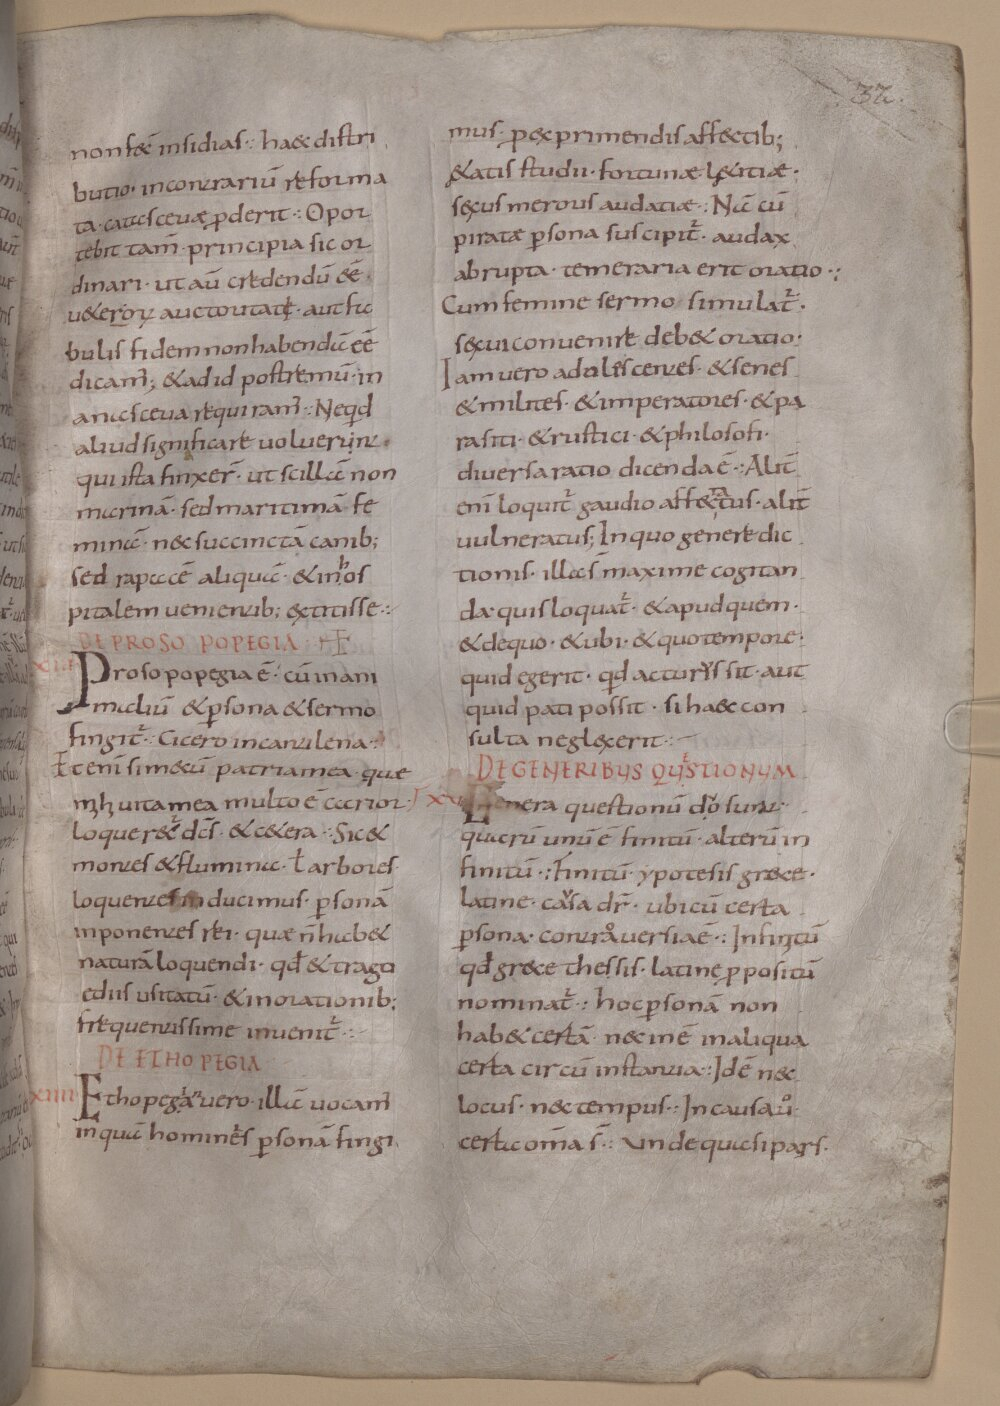 32.
non fec̄ insidias·: haec distri
butio· in conrrariū reforma
ta· catasceuae ꝑderit·: Opor
tebit tam̄· principia sic or
dinari· ut aū credendū eē·
ueteroꝝ auctoritate· aut fa
bulis fidem non habendū eē
dicam̄; & ad id postremū· in
anasceua requiram̄·: Neq̄d
aliud significare uoluerunt
qui ista finxer̄· ut scillā non
marinā· sed maritimā fe
minā· nec succinctā canib;
sed rapacē aliquā· & inhos
pitalem uenientib; extitisse·:
DE PROSOPOPEGIA
XIII
Prosopopegia ē· cū inani
maliū & ꝑsona & sermo
fingit̄·: Cicero in cantilena·:
Etenī si mecū patria mea· que
mihi uita mea multo ē carior·
loqueret̄ dc̄s· & cetera·: Sic &
montes & flumina· ł arbores·
loquentes inducimus· ꝑsonā
inponentes rei· quae n̄ habet
naturā loquendi· qd̄ & tragi
ediis usitatū· & in orationib;
frequentissime inuenit̄·:
DE ETHOPEGIA
XIIII
Ethopegiā uero· illā uocam̄
in qua hominis ꝑsonā fingi
mus· ꝑ exprimendis affectib;
&atis studii· fortunae letitiae·
sexus meroris audatiae·: Nā cū
piratae ꝑsona suscipit̄· audax
abrupta· temeraria erit oratio·:
Cum femine sermo simulat̄·
sexui conuenire debet oratio·
Iam uero adulescentes· & senes
& milites· & imperatores· & pa
rasiti· & rustici· & philosofi·
diuersa ratio dicenda ē·: Alit̄
enī loquit̄ gaudio affectus· alit̄
uulneratus; In quo genere dic
tionis· illa s̄ maxime cogitan
da· quis loquat̄· & apud quem·
& de quo· & ubi· & quo tempore·
quid egerit· qd̄ acturus sit· aut
quid pati possit· si haec con
sulta neglexerit·:
DE GENERIBUS QUĘSTIONUM
XV
Genera questionū duo sunt·
quarū unū ē finitū· alterū in
finitū·: Finitū· ypotesis grece·
latine· causa dr̄· ubi cū certa
ꝑsona· contrauersia ē·: Infinitū
qd̄ grece thessis· latine ꝓpositū
nominat̄·: hoc ꝑsonā non
habet certā· nec inē in aliqua
certa circū instantia·: Idē nec
locus· nec tempus·: In causa uō
certa om̄a s̄·: Unde quasi pars·